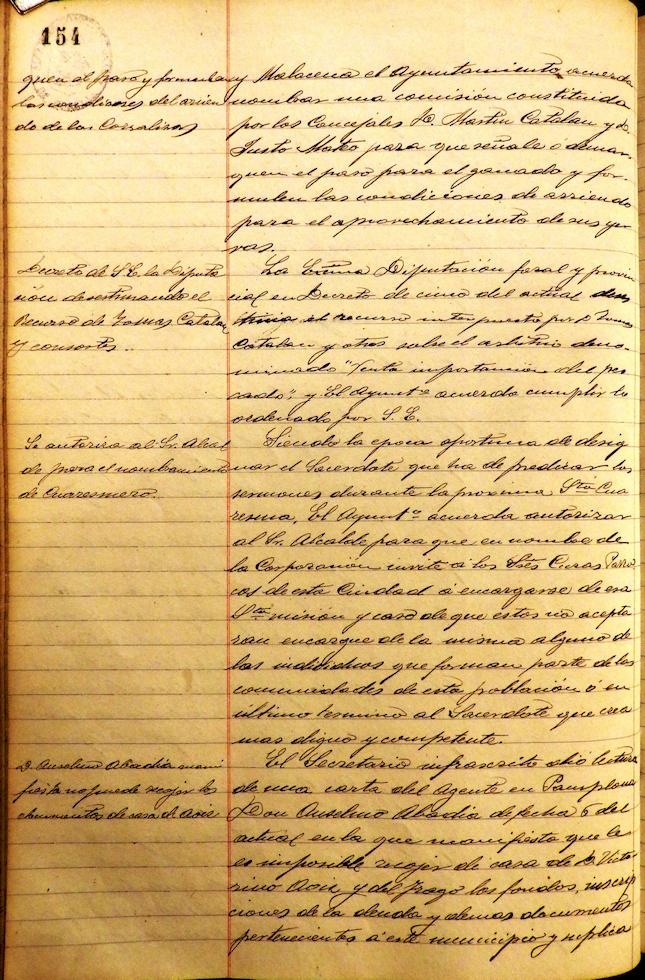 154
quen el paso y formulan
las condiciones del arrien
do de las Corralizas
y Malacena el Ayuntamiento acuerda
nombrar una comisión constituida
por los Concejales D. Martin Catalan y D.
Justo Mateo para que señale ó demar-
quen el paso para el ganado y for-
mulen las condiciones de arriendo
para el aprovechamiento de sus yer-
vas.
Decreto de S.E. la Diputa
ción desestimando el
Recurso de Tomas Catalan
y consortes.
La Exma Diputación foral y provin
cial en Decreto de cinco del actual deses
tima el recurso interpuesto por D. Tomas
Catalan y otros sobre el arbitrio deno-
minado "Venta importación del pes
cado". y El Ayuntº acuerda cumplir lo
ordenado por S. E.
Se autoriza al Sr. Alcal
de para el nombramiento
de Cuaresmero.
Siendo la epoca oportuna de desig
nar el Sacerdote que ha de predicar los
sermones durante la proxima Sta Cua
resma, El Ayuntº acuerda autorizar
al Sr. Alcalde para que en nombre de
la Corporación invite á los Sres Curas Parro
cos de esta Ciudad á encargarse de esa
Sta misión y caso de que estos no acepta
ran encargue de la misma alguno de
los individuos que forman parte de las
comunidades de esta población ó en
último termino al Sacerdote que crea
mas digno y competente.
D. Anselmo Abadia mani
fiesta no puede recojer los
documentos de casa de
El Secretario infrascrito dió lectura
de una carta del Agente en Pamplona
Don Anselmo Abadia de fecha 6 del
actual en la que manifiesta que le
es imposible recojer de casa de D. Victo-
rino y del los fondos, inscrip
ciones de la deuda y demas documentos
pertenecientes á este municipio y suplica